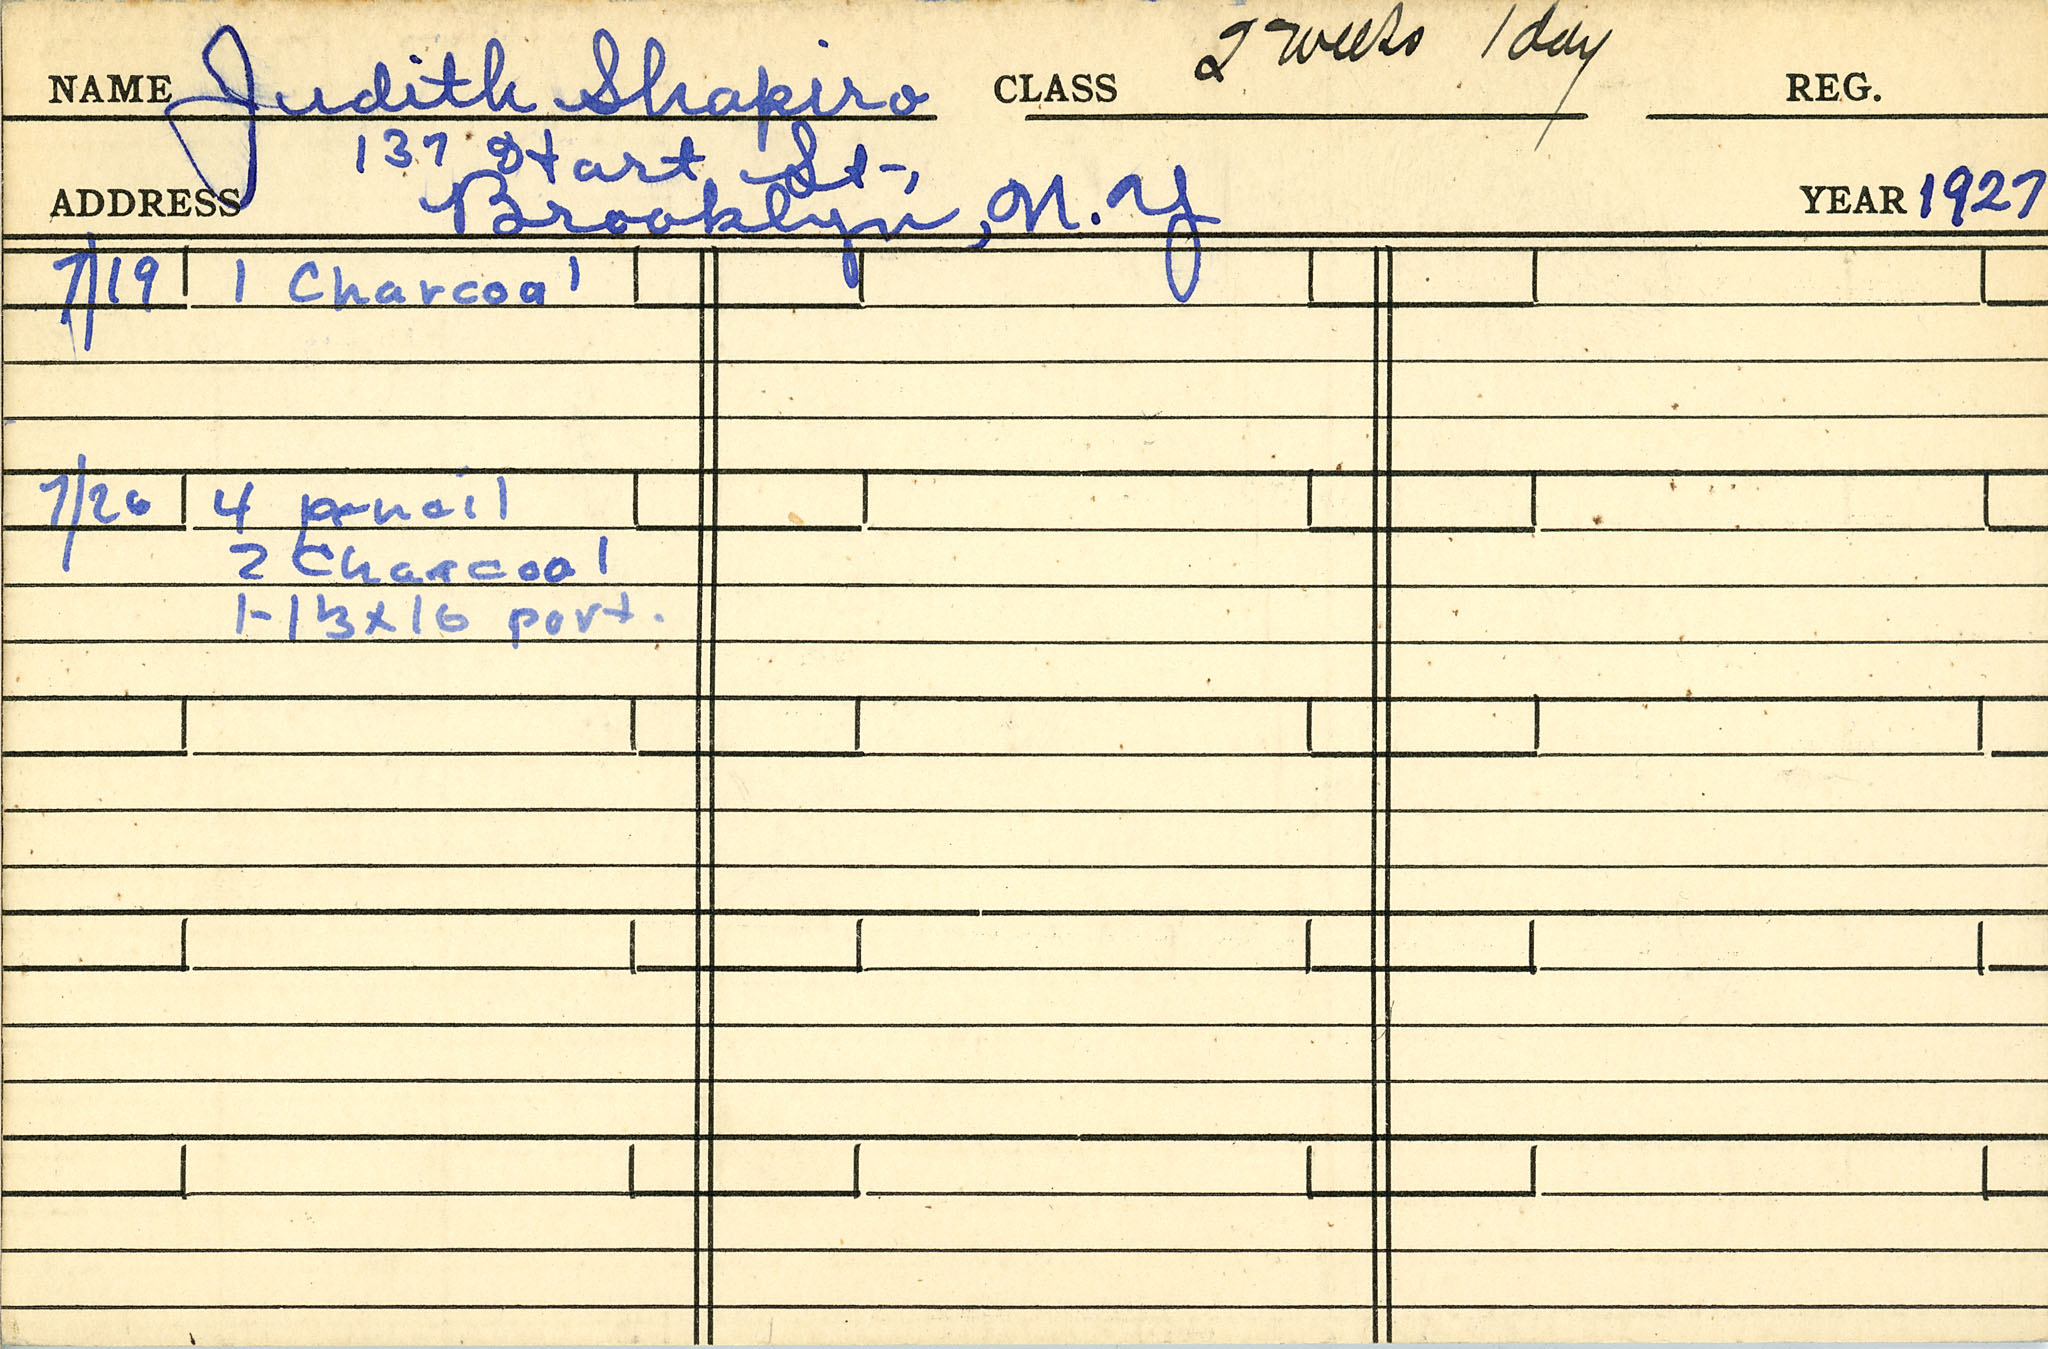 NAME Judith Shapiro CLASS 2 weeks 1 day REG.
137 Start St.,
ADDRESS Brooklyn, N.Y YEAR 1927
7/19 1 Charcoal
7/26 4 pencil
2 Charcoal
1-13x16 port.